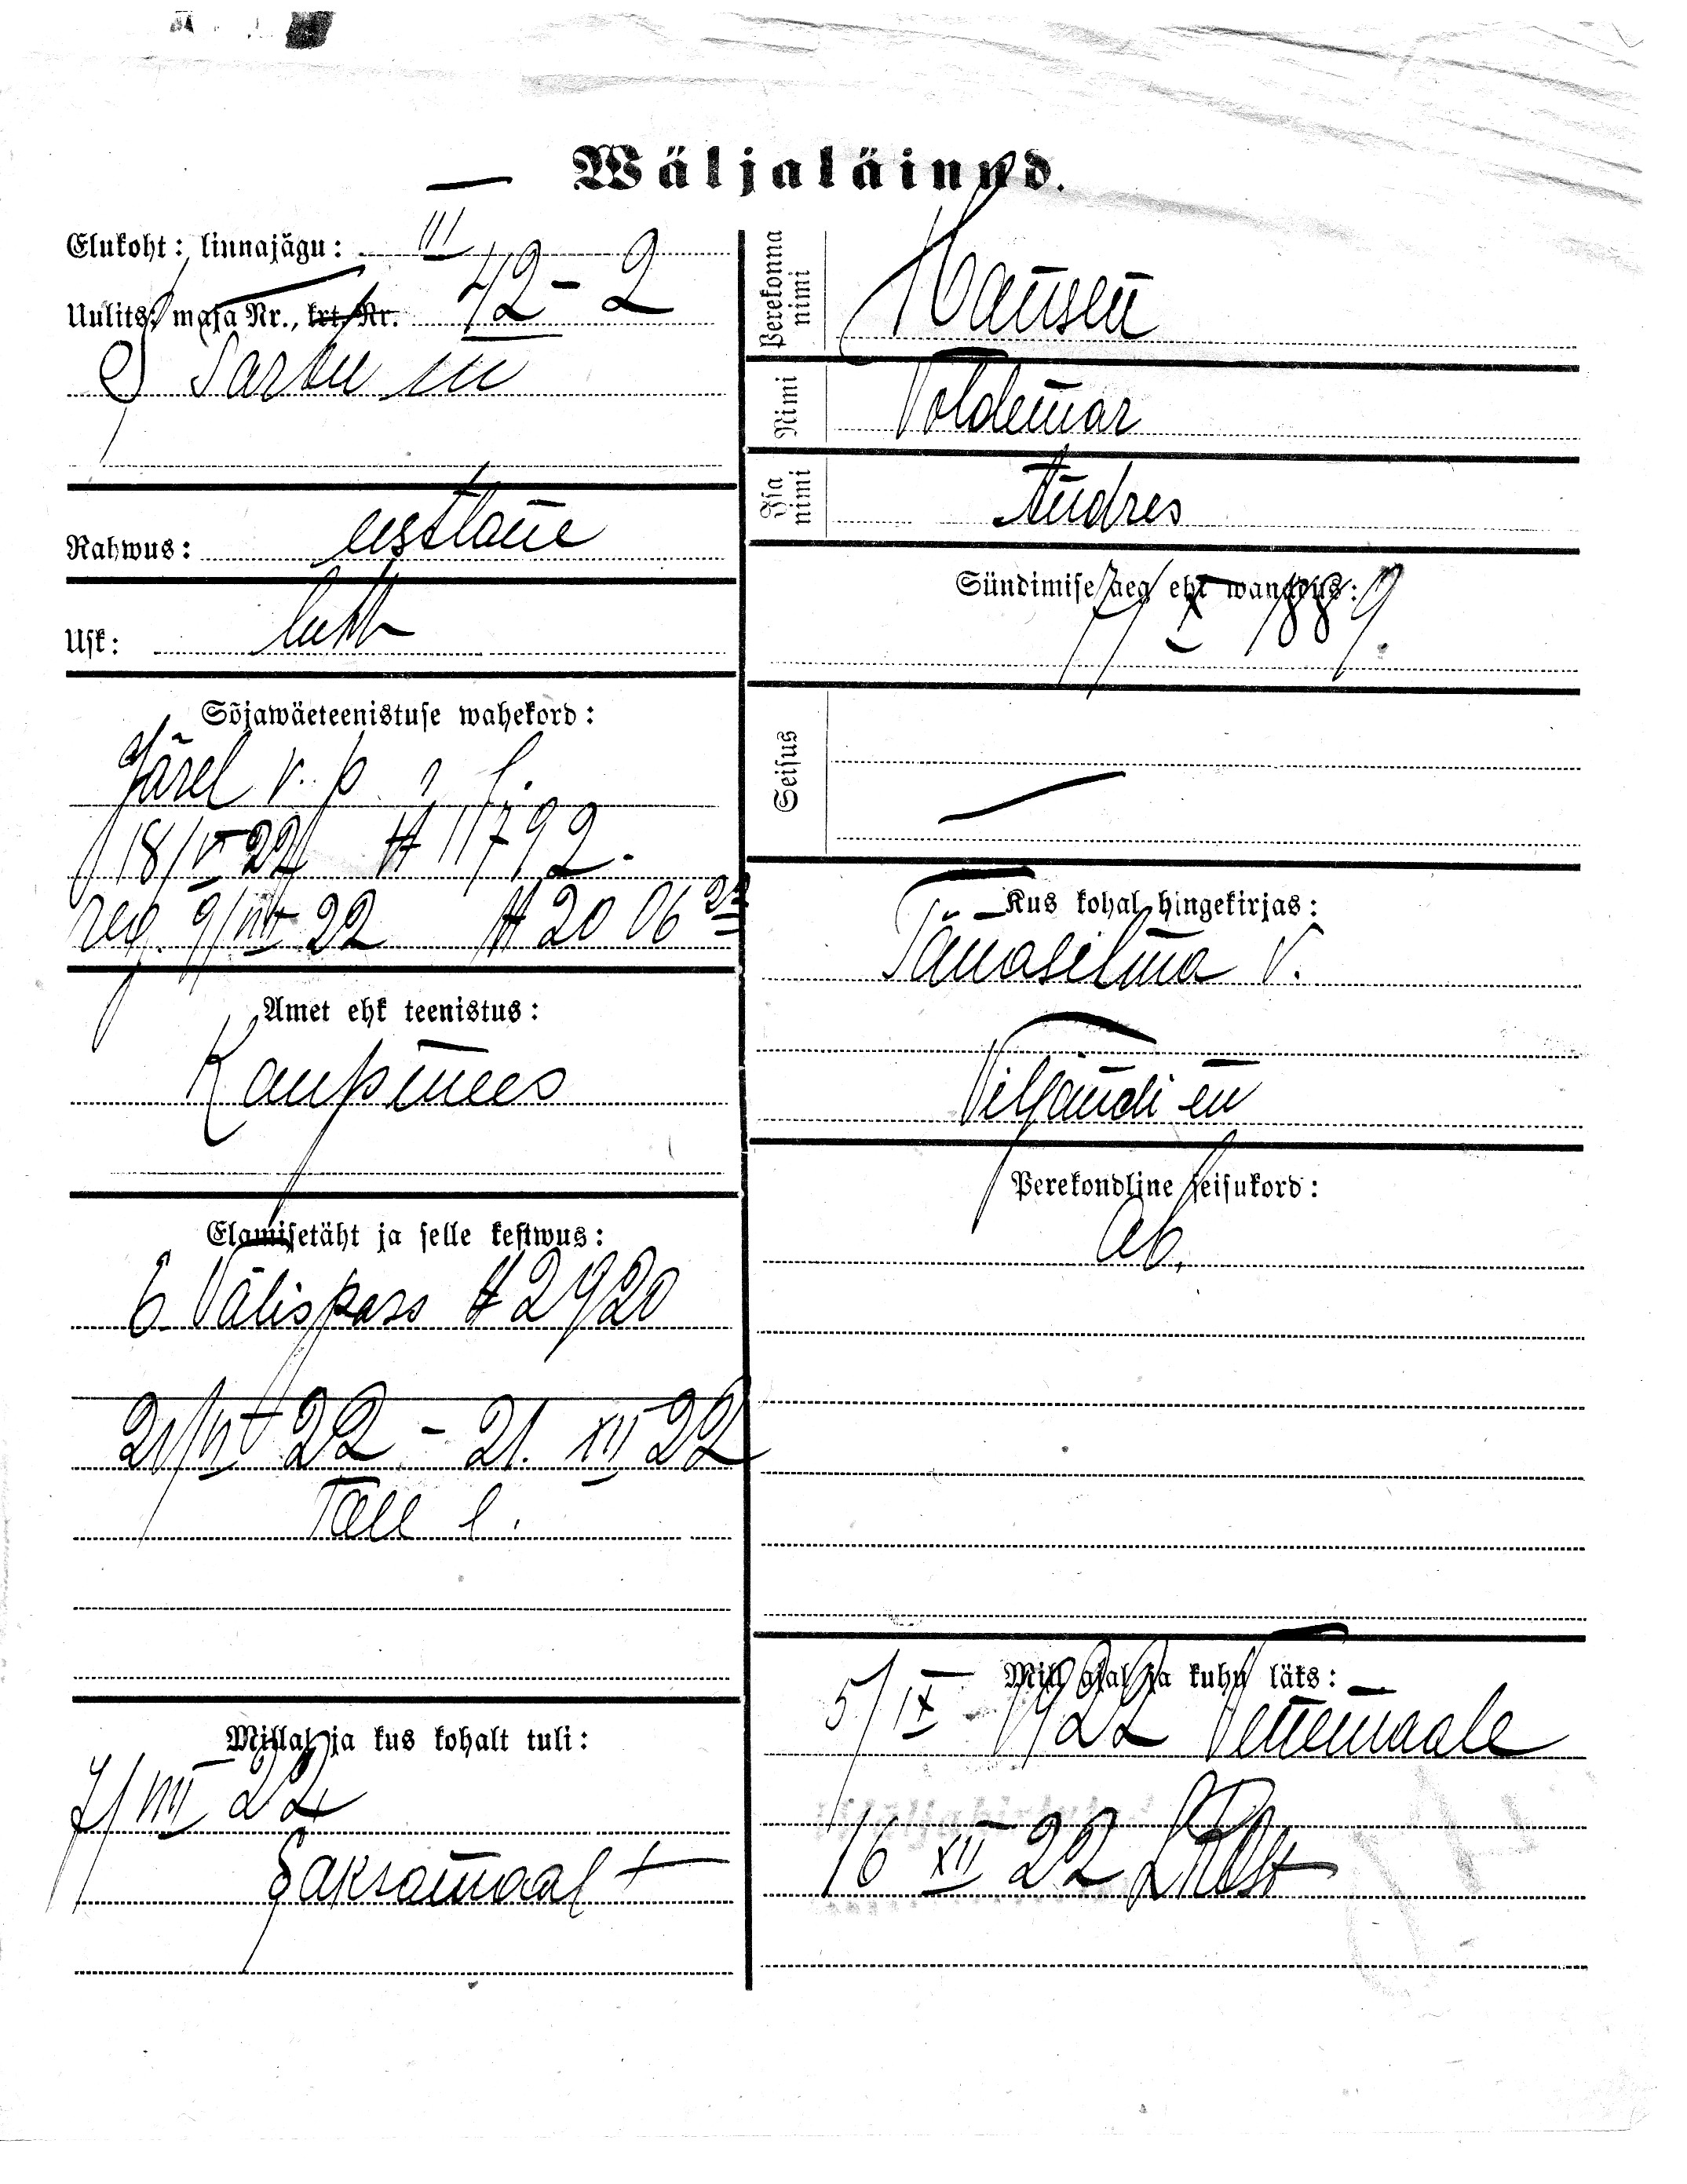 Wäljaläinud.
Elukoht: linnajägu: III
Uulits, maja Nr., krt. Nr. 42-2
S Tartu m
Rahwus: eestlane
Usk: luth
Sõjawäeteenistuse wahekord:
18/V 22 № 11792.
reg. 9/VIII 22 № 20 06
Amet ehk teenistus:
Kaupmees
Elamisetäht ja selle kestwus:
Välispass № 2920
21/VI 22 - 21. XII 22
Tall l.
Millal ja kus kohalt tuli:
7/VIII 22
Saksamaalt
Perekonna nimi
Hansen
Nimi
Voldemar
Isa nimi
Andres
Sündimise aeg ehk wanadus:
7/X 1889.
Seisus
—
Kus kohal hingekirjas:
Tänasilma v.
Viljandi m
Perekondline seisukord:
ab.
Mill ajal ja kuhu läks:
5/IX 1922 Venemaale
16 XII 22